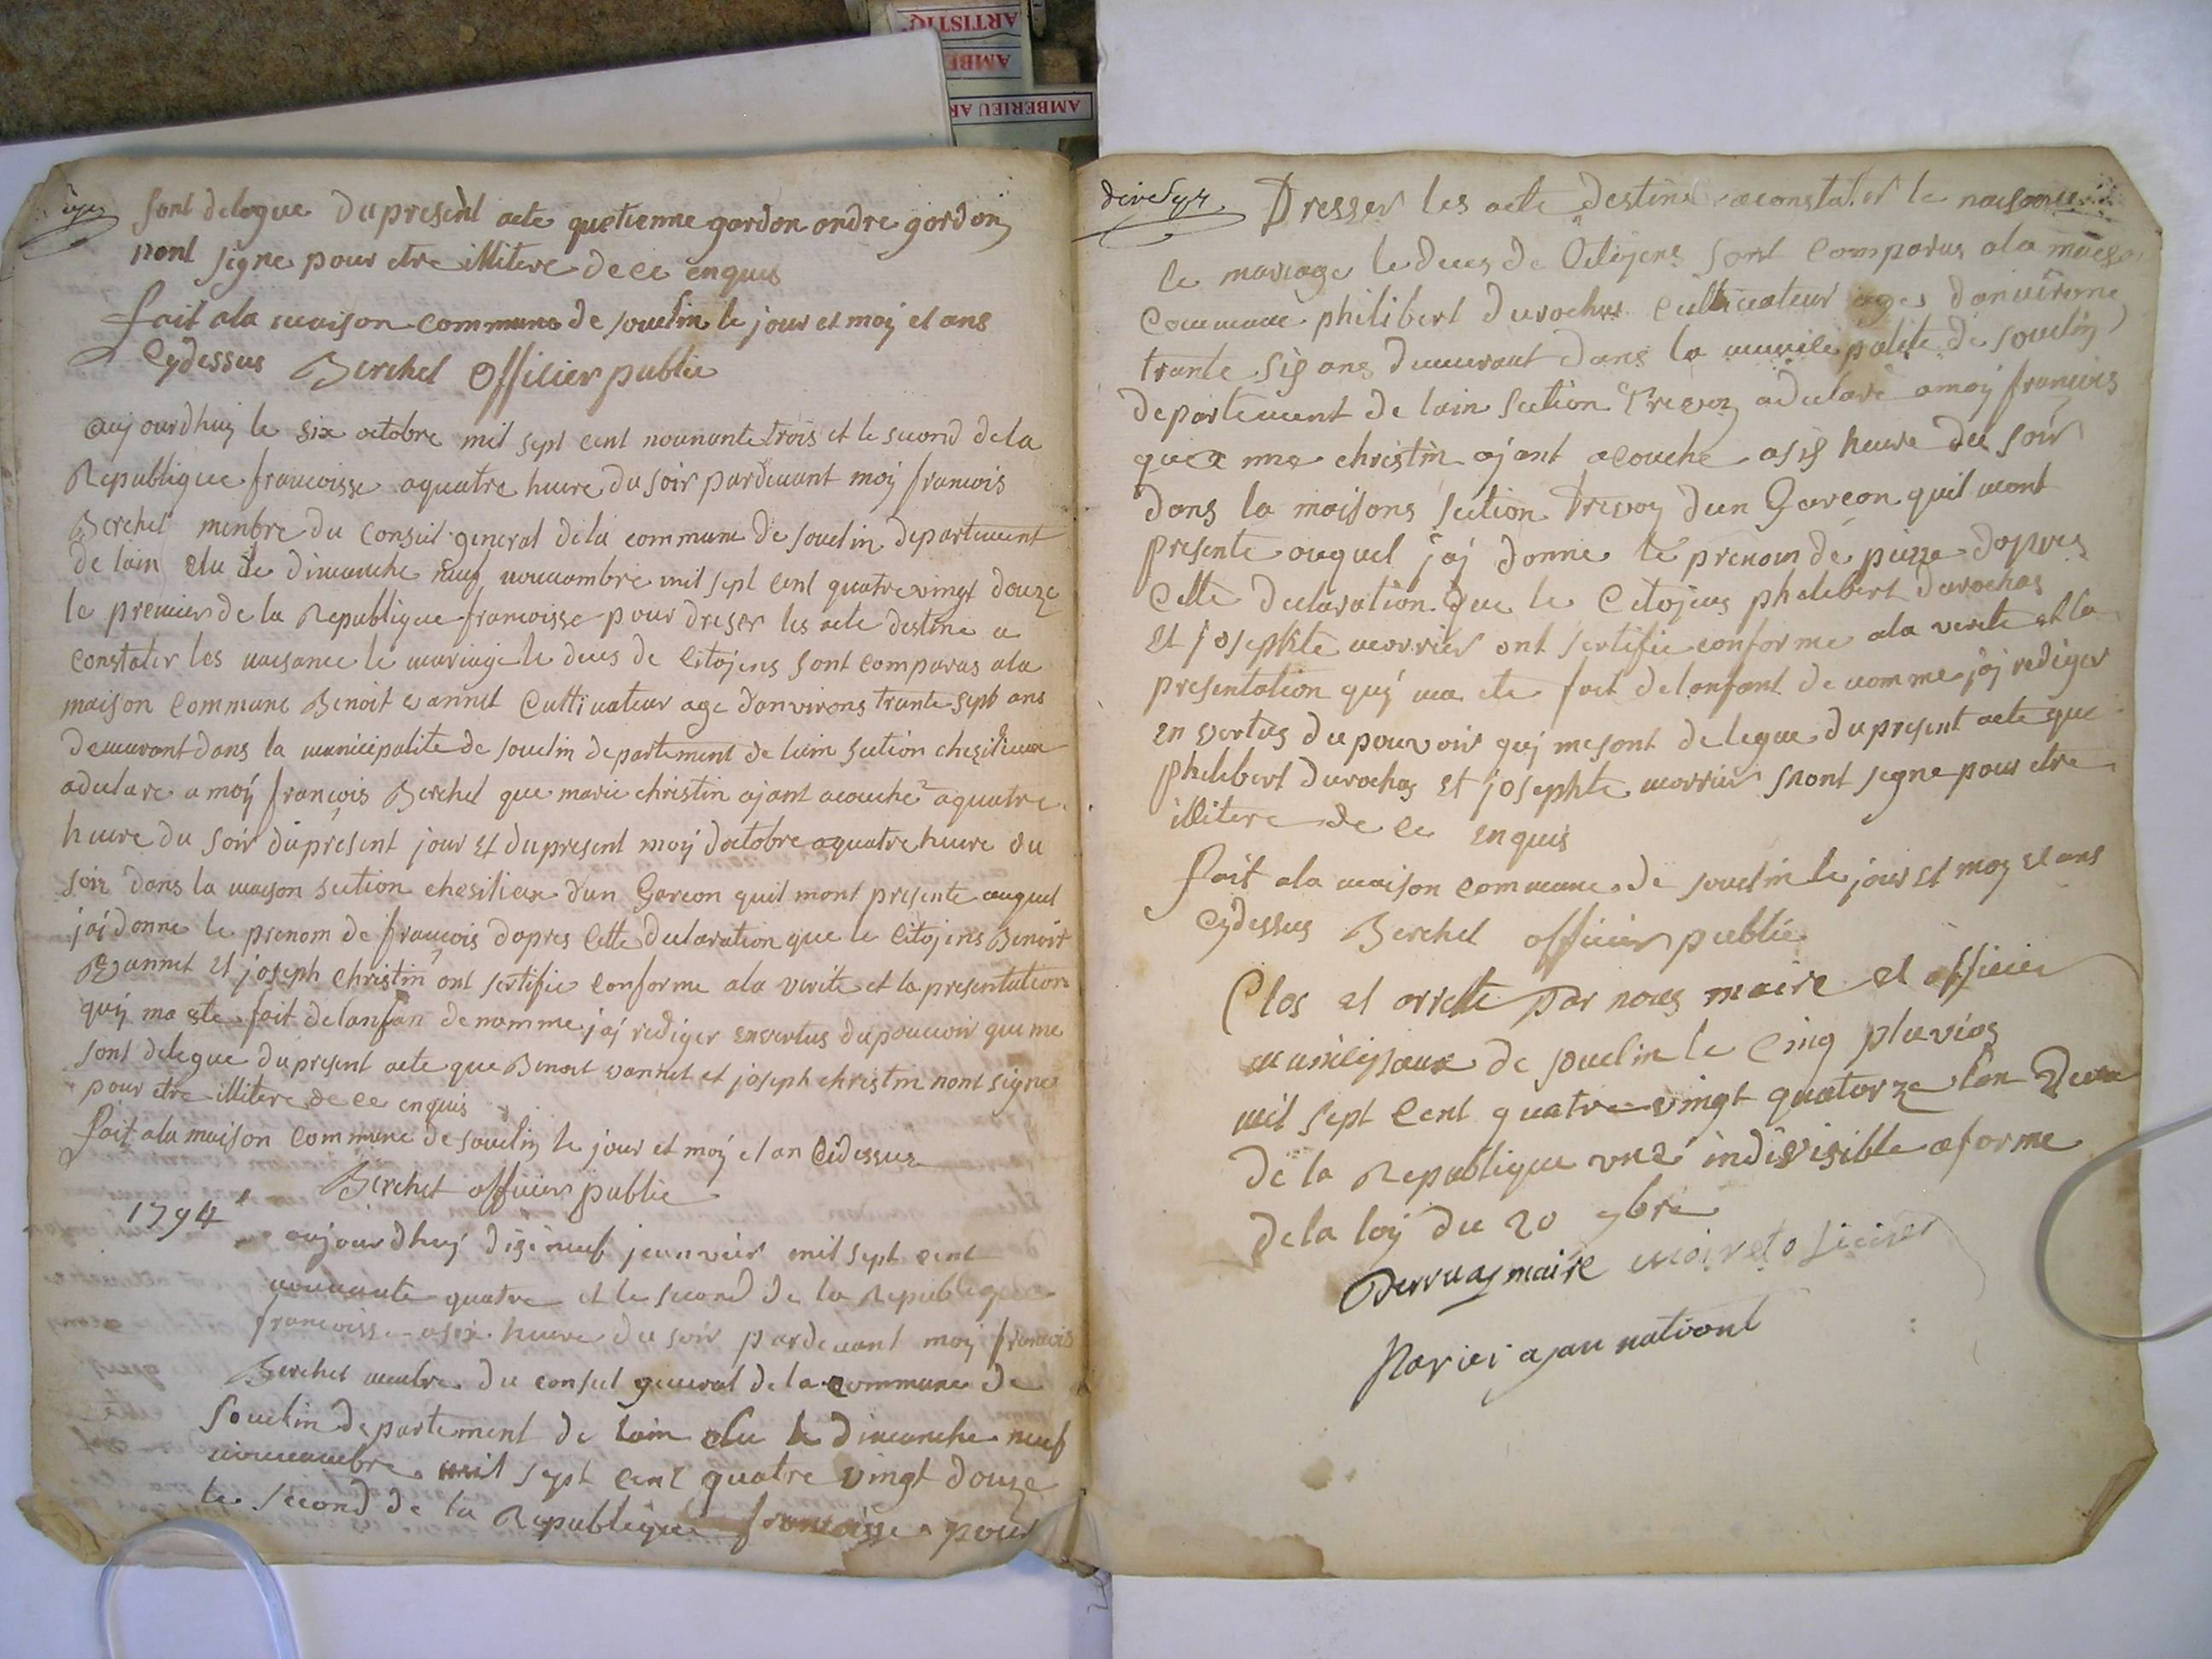 ARTISTIQ
AMBE
AMBERIEU AR
sont delegue du present acte quetienne gordon ondre gordon
nont signe pour etre illitere de ce enquis
fait ala maison commune de souclin le jour et moij et ans
Cydessus Berchet Officier public
aujourdhuij le six octobre mil sept cent nounante trois et le second de la
Republique francoisse aquatre heure du soir pardevant moij francois
Berchet menbre du Conseil general de la commune de souclin departement
de lain elu le dimanche neuf nouuambre mil sept cent quatre vingt douze
le premier de la Republique francoisse pour dreser les acte destine a
constater les naisance le mariage le deces de Citojens sont comparus ala
maison commune Benoit vannet Cultivateur age danvirons trante sept ans
demeurant dans la municipalite de souclin departement de lain section chesilieux
adeclare a moij francois Berchet que marie christin ajant acouche aquatre
heure du soir du present jour et du present moij doctobre aquatre heure du
soir dans la maison section chesilieux dun Garcon quil mont presente auquel
jaj donne le prenom de francois dapres Cette declaration que le Citojens Benoit
vannet et joseph christin ont sertifie conforme ala verite et la presentation
quij ma ete fait de lanfan denomme jaj rediger en vertus du pouvoir que me
sont delegue du present acte que Benoit vannet et joseph christin nont signe
pour etre illitere de ce enquis
fait ala maison commune de souclin le jour et moij et an Cidessus
Berchet officier public
1794
aujourdhuij diseneuf jeanvier mil sept cent
nounante quatre et le second de la Republique
francoisse asix heure du soir pardevant moij francois
Berchet menbre du conseil general de la commune de
Souclin departement de lain elu le dimanche neuf
nouuambre mil sept cent quatre vingt douze
le second de la Republique francoisse pour
Dresser les acte destine aconstater le naisance
le mariage le deces de Citojens sont comparus ala maison
commune philibert durochas Cultivateur ages danvirons
trante sis ans demeurant dans la municipalite de souclin
departement de lain section Trevoy adeclare amoij francois
que christin ajant acouche asis heure du soir
dans la maisons section Trevoy dun Garcon quil mont
presente auquel jaj donne le prenom de pierre dapres
Cette declaration que le Citojens phelebert durochas
et josephte morrier ont sertifie conforme ala verite et la
presentation quij ma ete fait de lanfant denomme jaj rediger
en vertus du pouvoir quij mesont delegue du present acte que
phelebert durochas et josephte morrier nont segne pour etre
illitere de ce enquis
fait ala maison commune de souclin le jour et moij et ans
Cydessus Berchet officier public
Clos et arrette par nous maire et officier
municipaux de souclin le Cinq pluvios
mil sept Cent quatre vingt quatorze lan Deux
de la Republique une indivisible aforme
de la loij du 20 7bre
maire
nationl